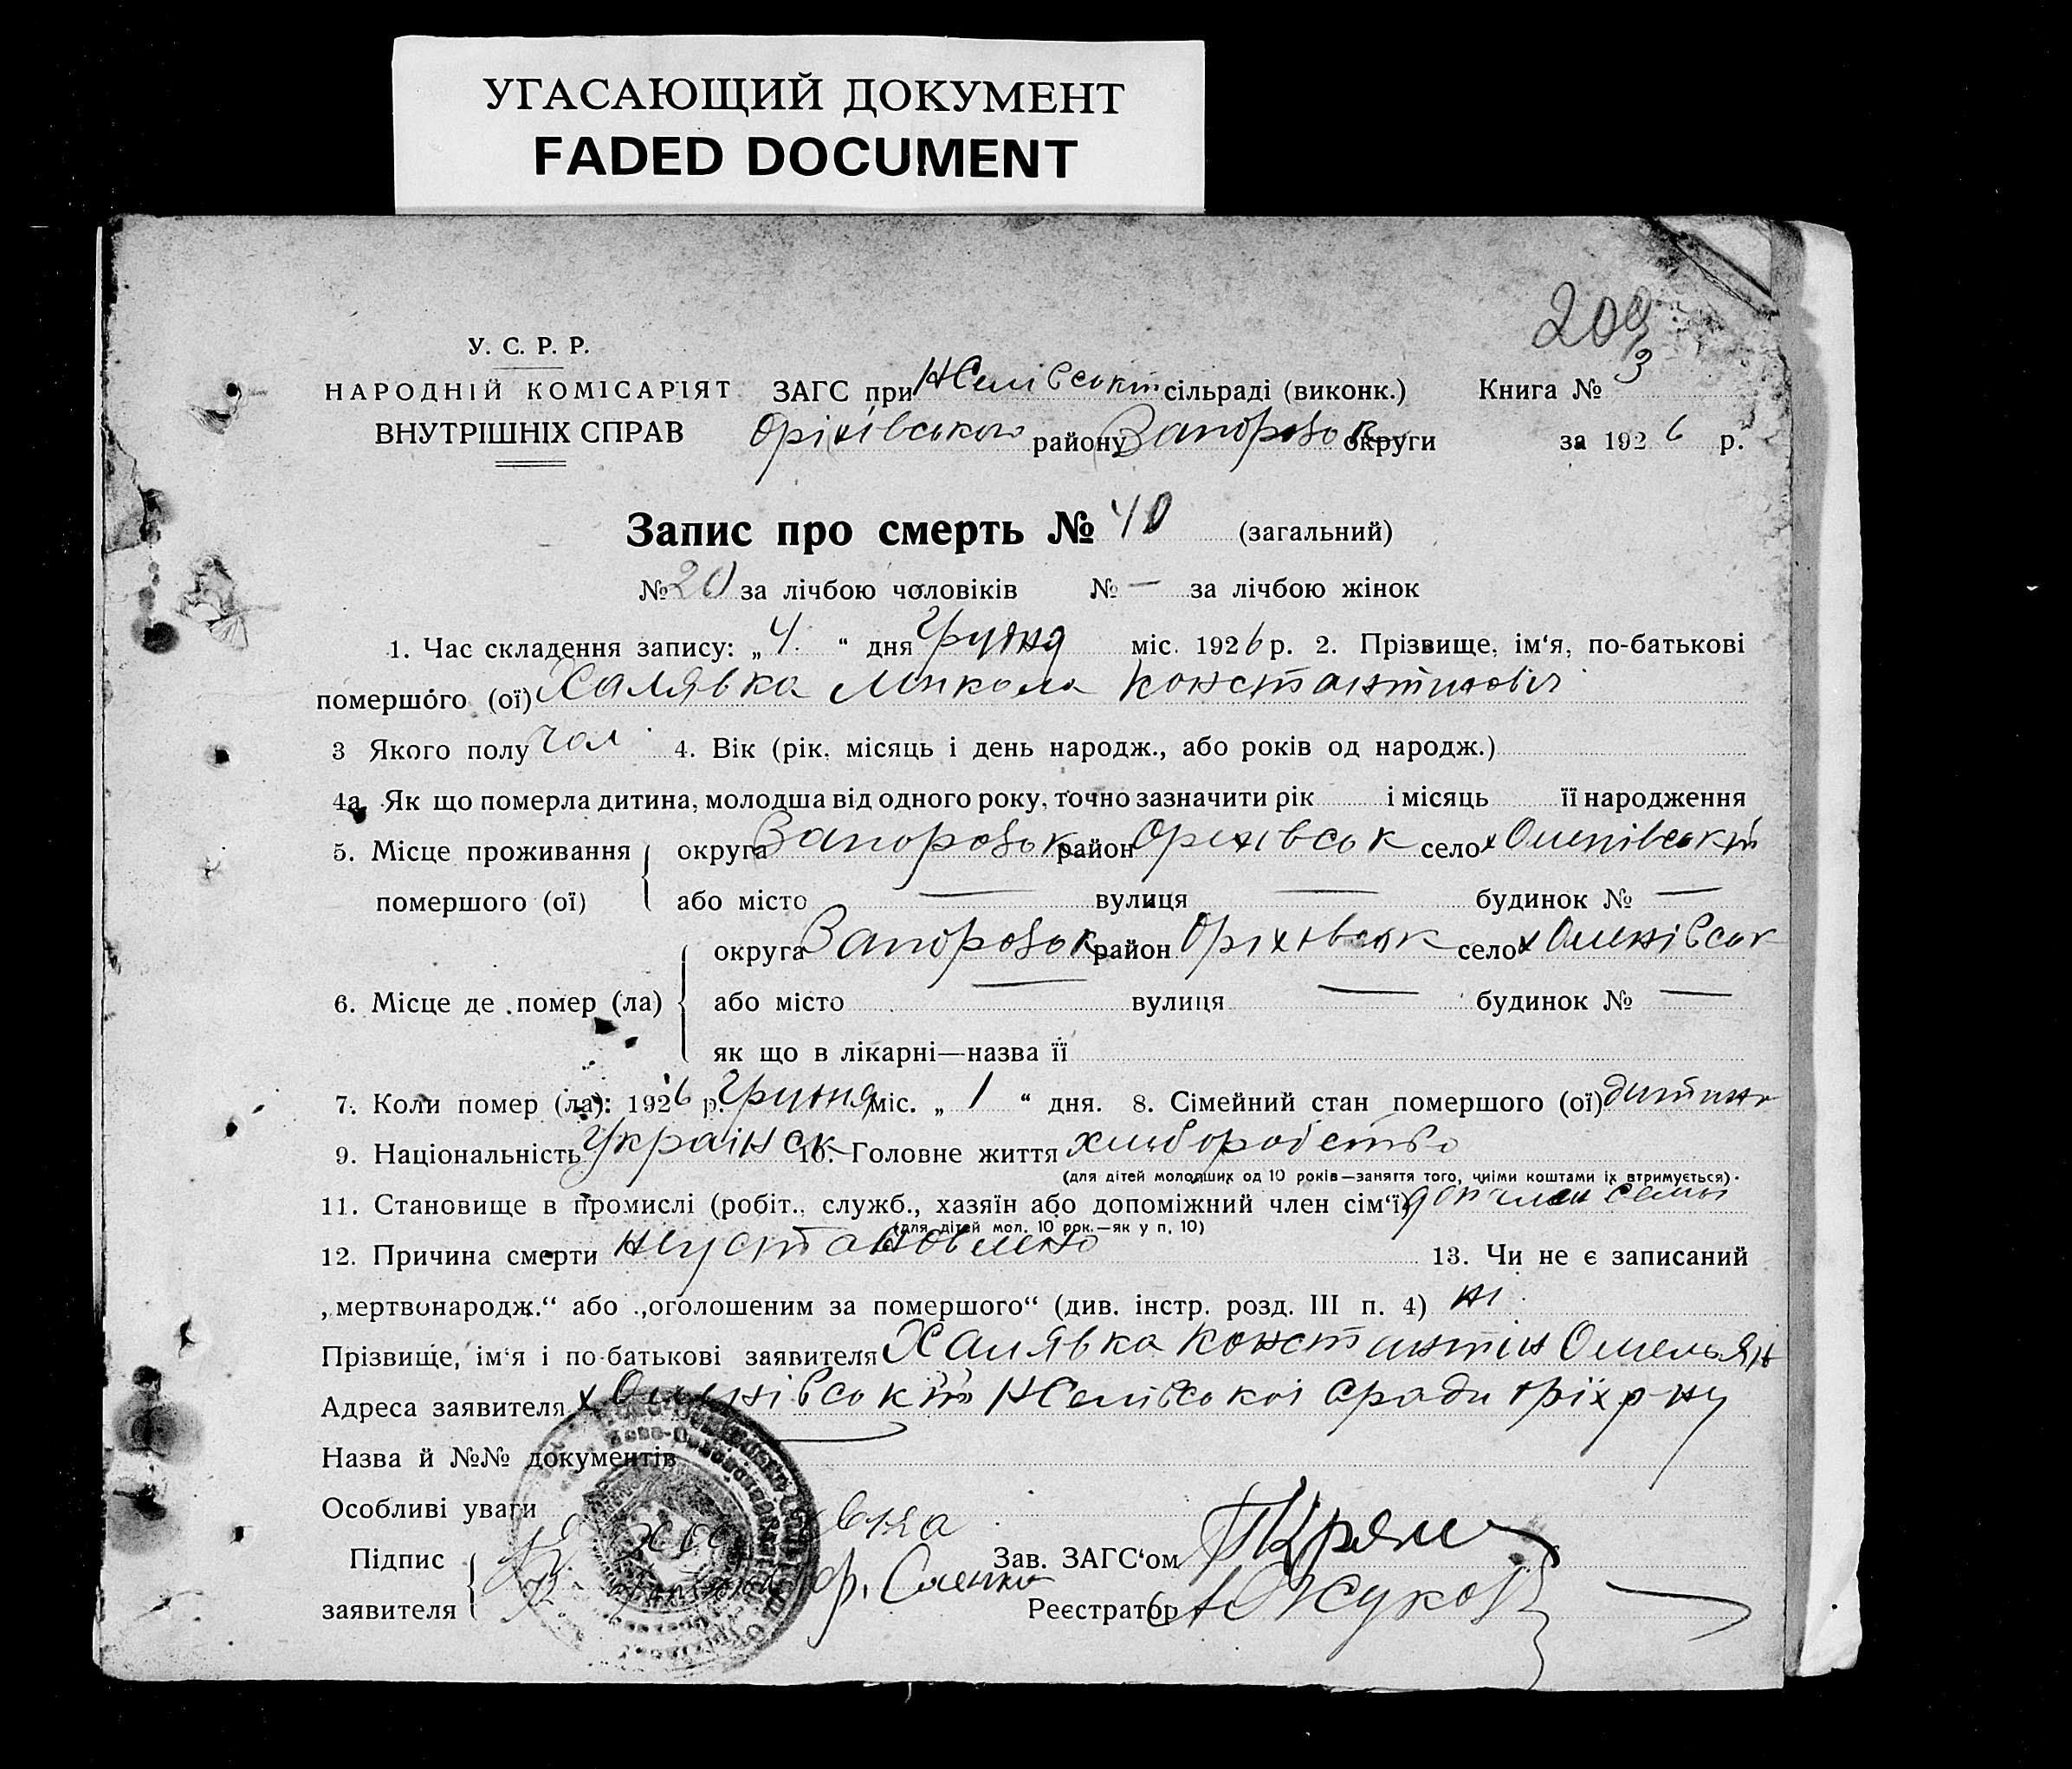 УГАСАЮЩИЙ ДОКУМЕНТ
FADED DOCUMENT
209
У. С. Р. Р.
НАРОДНІЙ КОМІСАРІЯТ ЗАГС при сільраді (виконк.) Книга № 3
ВНУТРІШНІХ СПРАВ Оріхівського району Запорозьк округи за 1926 р.
Запис про смерть № 40 (загальний)
№ 20 за лічбою чоловіків № — за лічбою жінок
1. Час складення запису: „4.“ дня Грудня міс. 1926 р. 2. Прізвище, ім‘я, по-батькові
помершого (ої) Халявка Микола Константинович
3 Якого полу чол 4. Вік (рік, місяць і день народж., або років од народж.)
4а Як що померла дитина, молодша від одного року, точно зазначити рік і місяць її народження
5. Місце проживання округа Запорозьк район Оріхівськ село
помершого (ої) або місто — вулиця — будинок № —
округа Запорозьк район Оріхівськ село х Оленівськ
6. Місце де помер (ла) або місто — вулиця — будинок № —
як що в лікарні—назва її
7. Коли помер (ла): 1926 р. Грудня міс. „1“ дня. 8. Сімейний стан помершого (ої) дитина
9. Національність Українск 10. Головне життя хліборобство
(для дітей молодших од 10 років—заняття того, чиїми коштами їх втримується).
11. Становище в промислі (робіт., служб., хазяїн або допоміжний член сім‘ї) доп член семьи
(для дітей мол. 10 рок.—як у п. 10)
12. Причина смерти неустановлено 13. Чи не є записаний
„мертвонародж.“ або „оголошеним за помершого“ (див. інстр. розд. III п. 4) ні
Прізвище, ім‘я і по-батькові заявителя Халявка Константін Омельян
Адреса заявителя х Оленівський ради Оріх р-ну
Назва й №№ документів
Особливі уваги
Підпис Зав. ЗАГС‘ом
заявителя Реєстратор Жуков